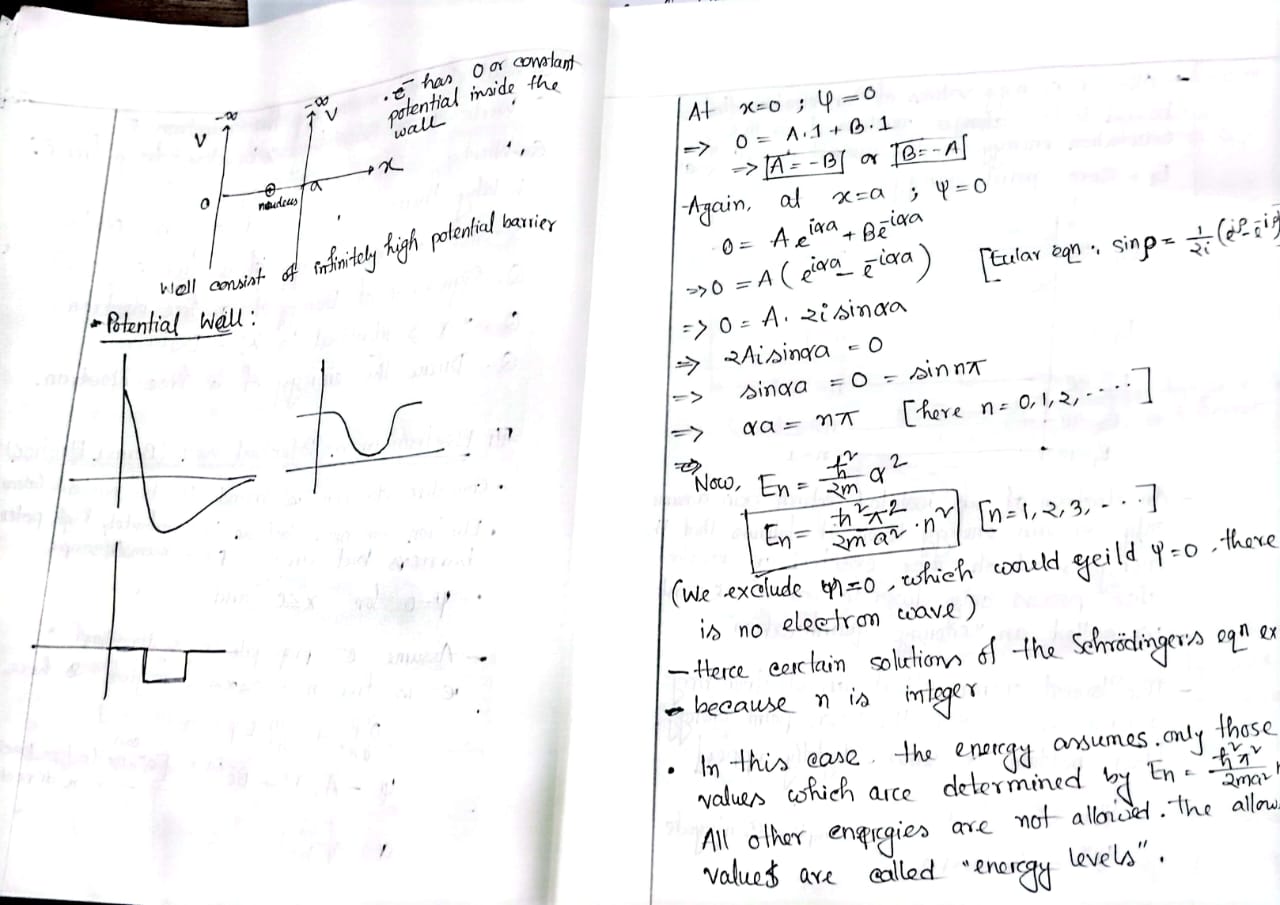 -∞
-∞
V
V
. e⁻ has 0 or constant
potential inside the
wall
x
0
⊕
a
neucleus
Well consist of infinitely high potential barrier
Potential Well:
At x=0 ; Ψ=0
=> 0 = A.1 + B.1
=> A = -B or B = -A
Again, at x=a ; Ψ=0
0 = A e^{iαa} + B e^{-iαa}
=> 0 = A (e^{iαa} - e^{-iαa}) [Eular eqn :, sin ρ = 1/2i (e^{iρ} - e^{-iρ})
=> 0 = A. 2i sin αa
=> 2Ai sin αa = 0
=> sin αa = 0 = sin nπ
=> αa = nπ [here n = 0, 1, 2, ....]
Now, En = ħ²/2m α²
En = ħ²π²/2ma² . n² [n = 1, 2, 3, ...]
(We exclude n=0, which would yeild Ψ=0, there
is no electron wave)
- Herce certain solutions of the Schrödingers eqn ex
- because n is integer
• In this case the energy assumes only those
values which are determined by En = ħ²π²/2ma² n
All other energies are not allowed. The allow
values are called "energy levels".